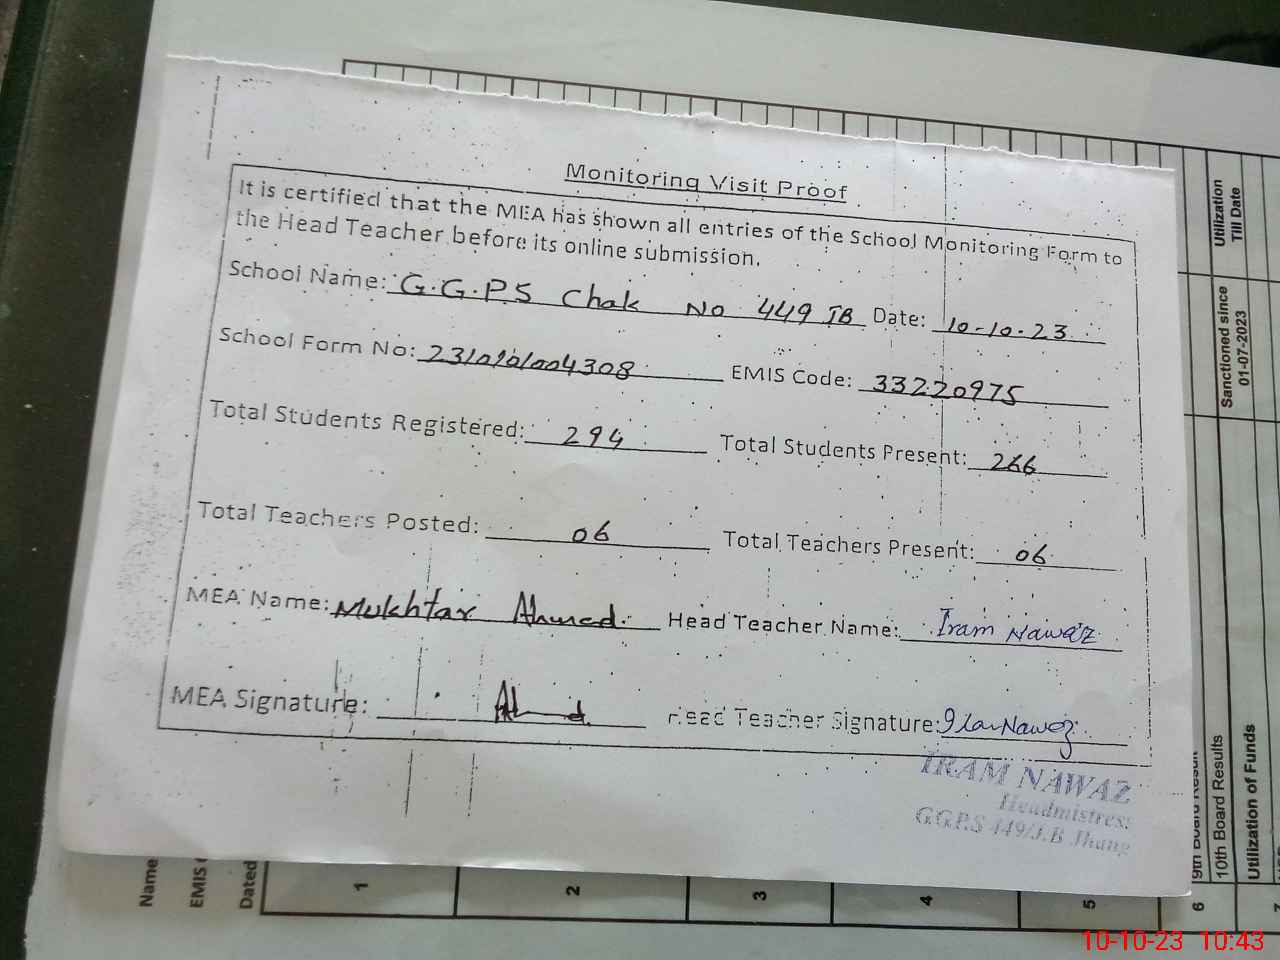 Monitoring Visit Proof
It is certified that the MEA has shown all entries of the School Monitoring Form to
the Head Teacher before its online submission.
School Name: G.G.P.S Chak No 449 JB Date: 10-10-23
School Form No: EMIS Code: 33220975
Total Students Registered: 294 Total Students Present: 266
Total Teachers Posted: 06 Total Teachers Present: 06
MEA Name: Mukhtar Ahmed. Head Teacher Name: Iram Nawaz
MEA Signature: Head Teacher Signature: Iram Nawaz
IRAM NAWAZ
Headmistress
G.G.P.S 449/J.B Jhang
Utilization
Till Date
Sanctioned since
01-07-2023
10th Board Results
Utilization of Funds
Name
EMIS
Dated
1
2
3
4
5
6
7
10-10-23 10:43